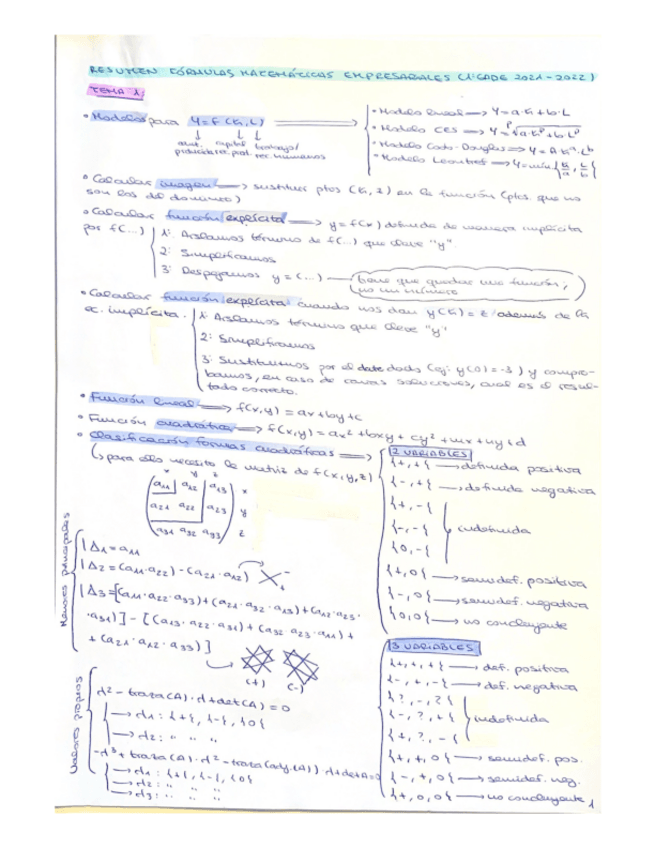 RESUMEN FÓRMULAS MATEMÁTICAS EMPRESARIALES (1ºGADE 2021-2022)
TEMA 1:
• Modelos para Y=f(K,L) ⟹
• Modelo lineal → Y=a·K+b·L
• Modelo CES → Y=ᵖ√(a·Kᵖ+b·Lᵖ)
• Modelo Cobb-Douglas → Y=A·Kᵃ·Lᵇ
• Modelo Leontief → Y=min{K/a, L/b}
cant. capital trabajo/
producida rec. prod. rec. humanos
• Calcular imagen ⟹ sustituir ptos (K,L) en la función (ptos que no
son los del dominio)
• Calcular función explícita ⟹ y=f(x) definida de manera implícita
por f(...)
1: Aislamos término de f(...) que lleve "y"
2: Simplificamos
3: Despejamos y=(...) — (tiene que quedar una función,
no un número
• Calcular función explícita cuando nos dan y(K)=z/además de la
ec. implícita.
1: Aislamos término que lleve "y"
2: Simplificamos
3: Sustituimos por el dato dado (ej: y(0)=-3) y compro-
bamos, en caso de varias soluciones, cual es el resul-
tado correcto.
• Función lineal ⟹ f(x,y)=ax+by+c
• Función cuadrática ⟹ f(x,y)=ax²+bxy+cy²+mx+ny+d
• Clasificación formas cuadráticas ⟹
(↳ para ello necesito la matriz de f(x,y,z)
x y z
a11 a12 a13 x
a21 a22 a23 y
a31 a32 a33 z
Menores principales
Δ1=a11
Δ2=(a11·a22)-(a21·a12)
Δ3=[(a11·a22·a33)+(a21·a32·a13)+(a12·a23·
·a31)]-[(a13·a22·a31)+(a32·a23·a11)+
+(a21·a12·a33)]
(+) (-)
Valores propios
λ²-traza(A)·λ+det(A)=0
→ λ1: {+}, {-}, {0}
→ λ2: " " "
-λ³+traza(A)·λ²-traza(adj(A))·λ+detA=0
→ λ1: {+}, {-}, {0}
→ λ2: " " "
→ λ3: " " "
2 VARIABLES
{+,+} → definida positiva
{-,+} → definida negativa
{+,-}
{-,-} indefinida
{0,-}
{+,0} → semidef. positiva
{-,0} → semidef. negativa
{0,0} → no concluyente
3 VARIABLES
{+,+,+} → def. positiva
{-,+,-} → def. negativa
{?,-,?}
{-,?,+} indefinida
{+,?,-}
{+,+,0} → semidef. pos.
{-,+,0} → semidef. neg.
{+,0,0} → no concluyente
1